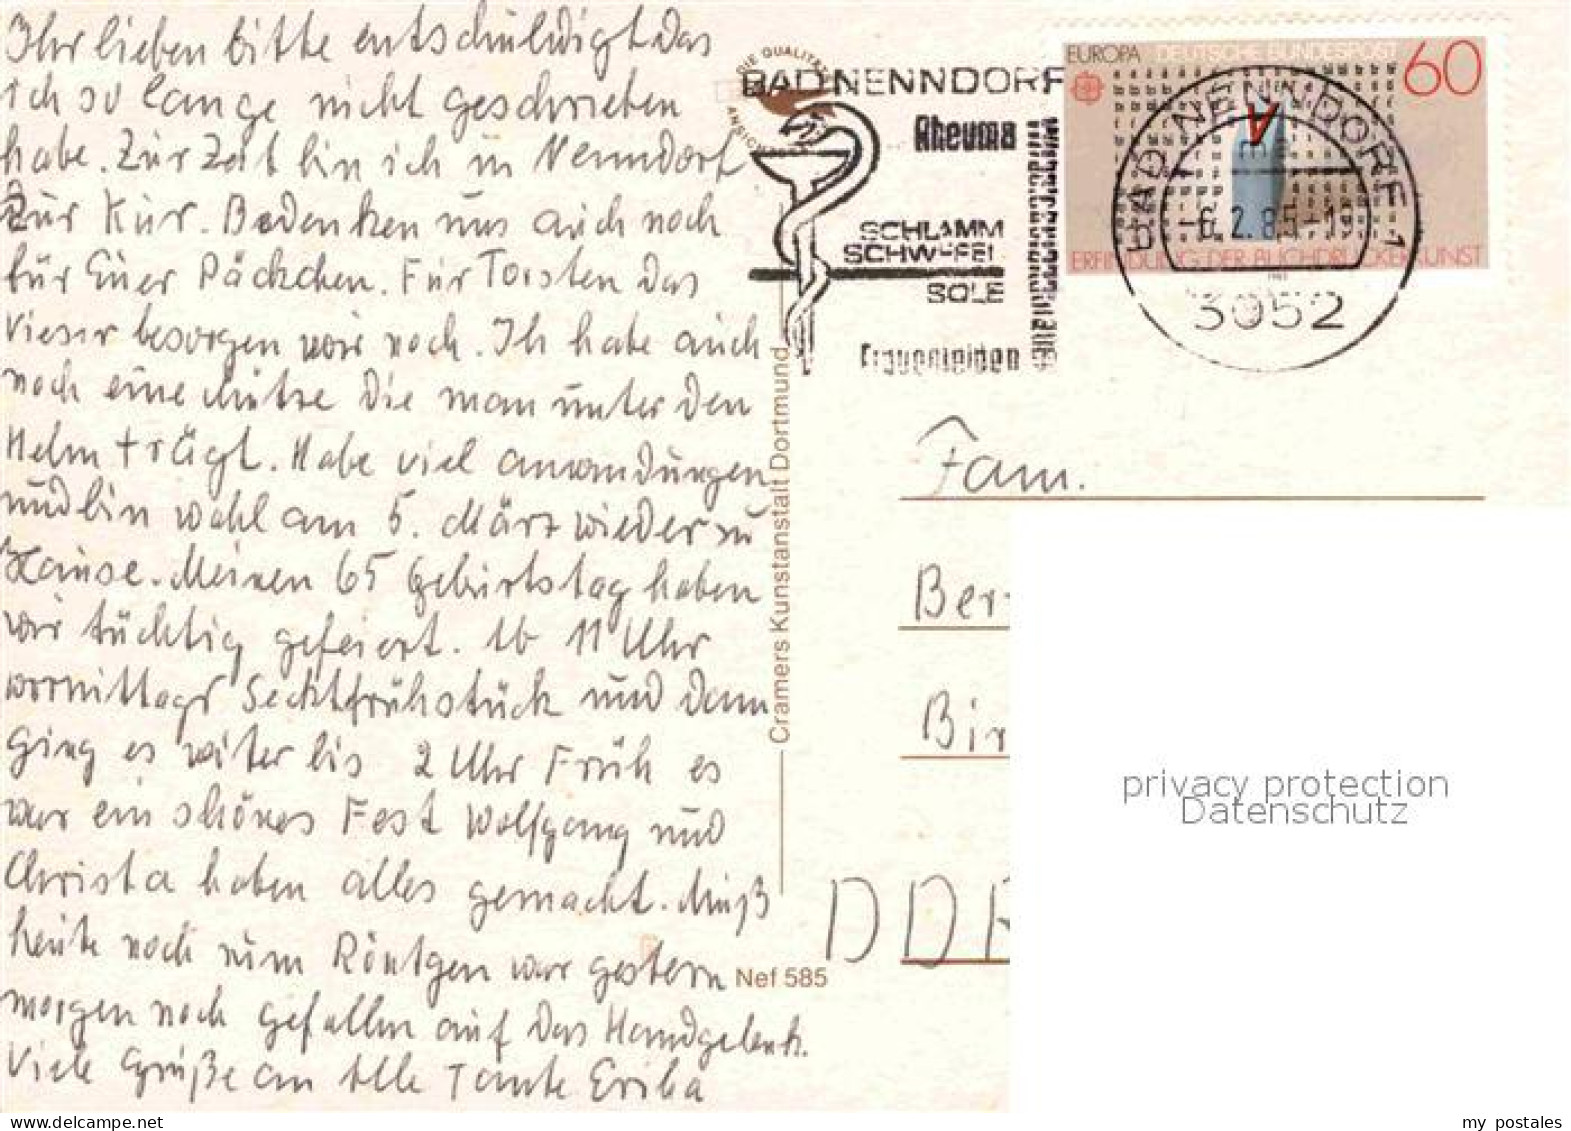 Ihr lieben bitte entschuldigt das
ich so lange nicht geschrieben
habe. Zur Zeit bin ich in Nenndorf
Zur Kur. Bedanken uns auch noch
für Euer Päckchen. Für Torsten das
Vieser besorgen wir noch. Ich habe auch
noch eine Mütze die man unter den
Helm trägt. Habe viel anwendungen
und bin wohl am 5. März wieder zu
Hause. Meinen 65 Geburtstag haben
wir tüchtig gefeiert. Ab 11 Uhr
vormittags Secktfrühstück und dann
ging es weiter bis 2 Uhr Früh es
war ein schönes Fest Wolfgang und
Christa haben alles gemacht. Muß
heute noch zum Röntgen war gestern
morgen noch gefallen auf das Handgelenk.
Viele Grüße an Alle Tante Erika
DIE QUALITÄT
ANSICH
BAD NENNDORF
Rheuma
SCHLAMM
SCHWEFEL
SOLE
Frauenleiden
EUROPA DEUTSCHE BUNDESPOST 60
ERFINDUNG DER BUCHDRUCKERKUNST
BAD NENNDORF 1
-6.2.85-
3052
Cramers Kunstanstalt Dortmund
Nef 585
Fam.
Ber
Bir
DDR
privacy protection
Datenschutz
www.delcampe.net
my_postales